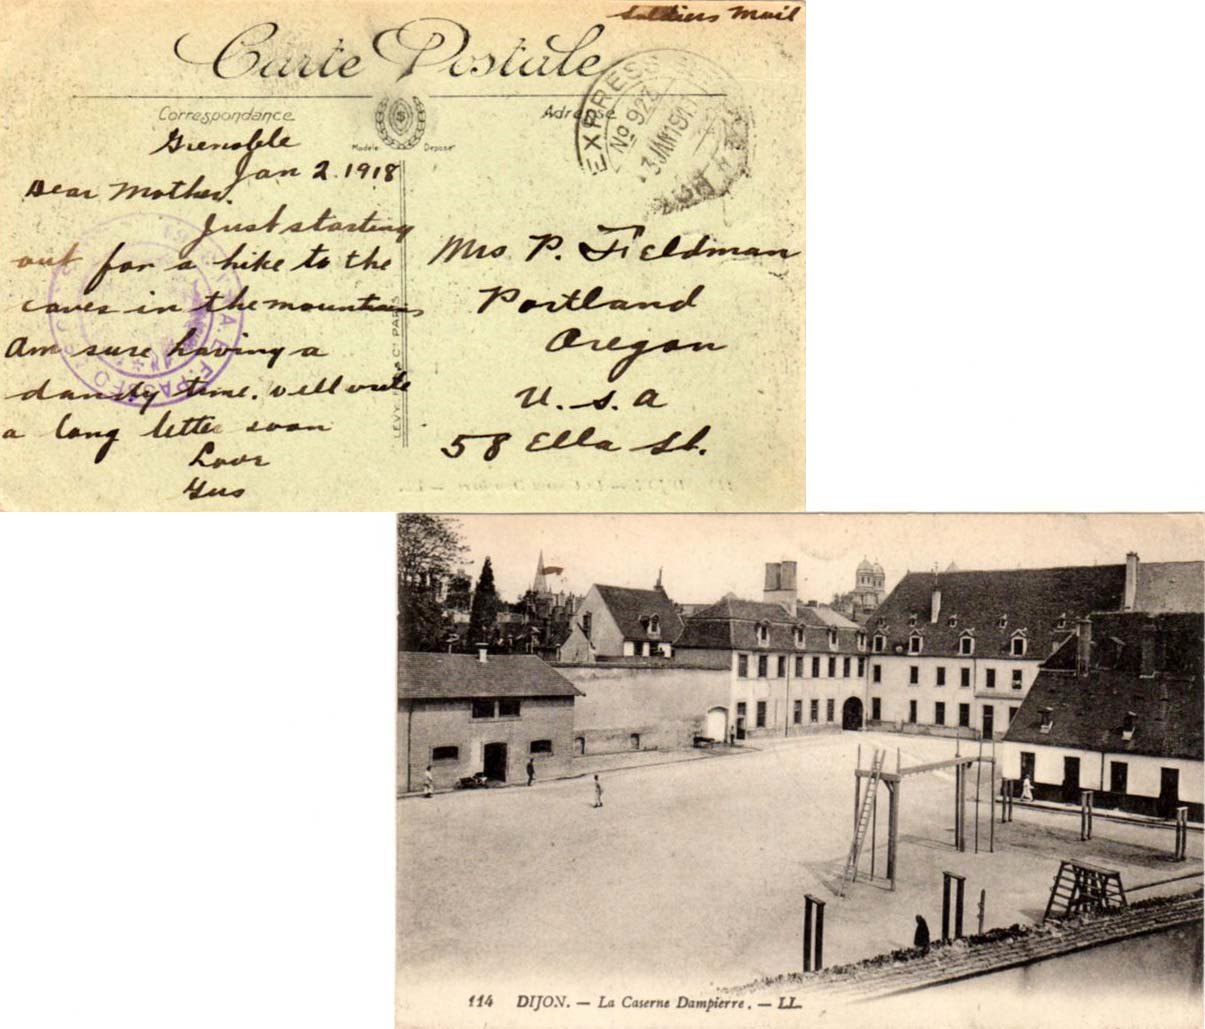 Soldiers Mail
Carte Postale
Correspondance
Adresse
Modèle Déposé
EXPRESS
No 922
3 JAN 191
Grenoble
Jan 2. 1918
Dear Mother.
Just starting
out for a hike to the
caves in the mountains
Am sure having a
dandy time. will write
a long letter soon
Love
Gus
A.E.F. PASSED
LEVY
PARIS
Mrs P. Fieldman
Portland
Oregon
U. S. A
58 Ella St.
114 DIJON. — La Caserne Dampierre. — LL.